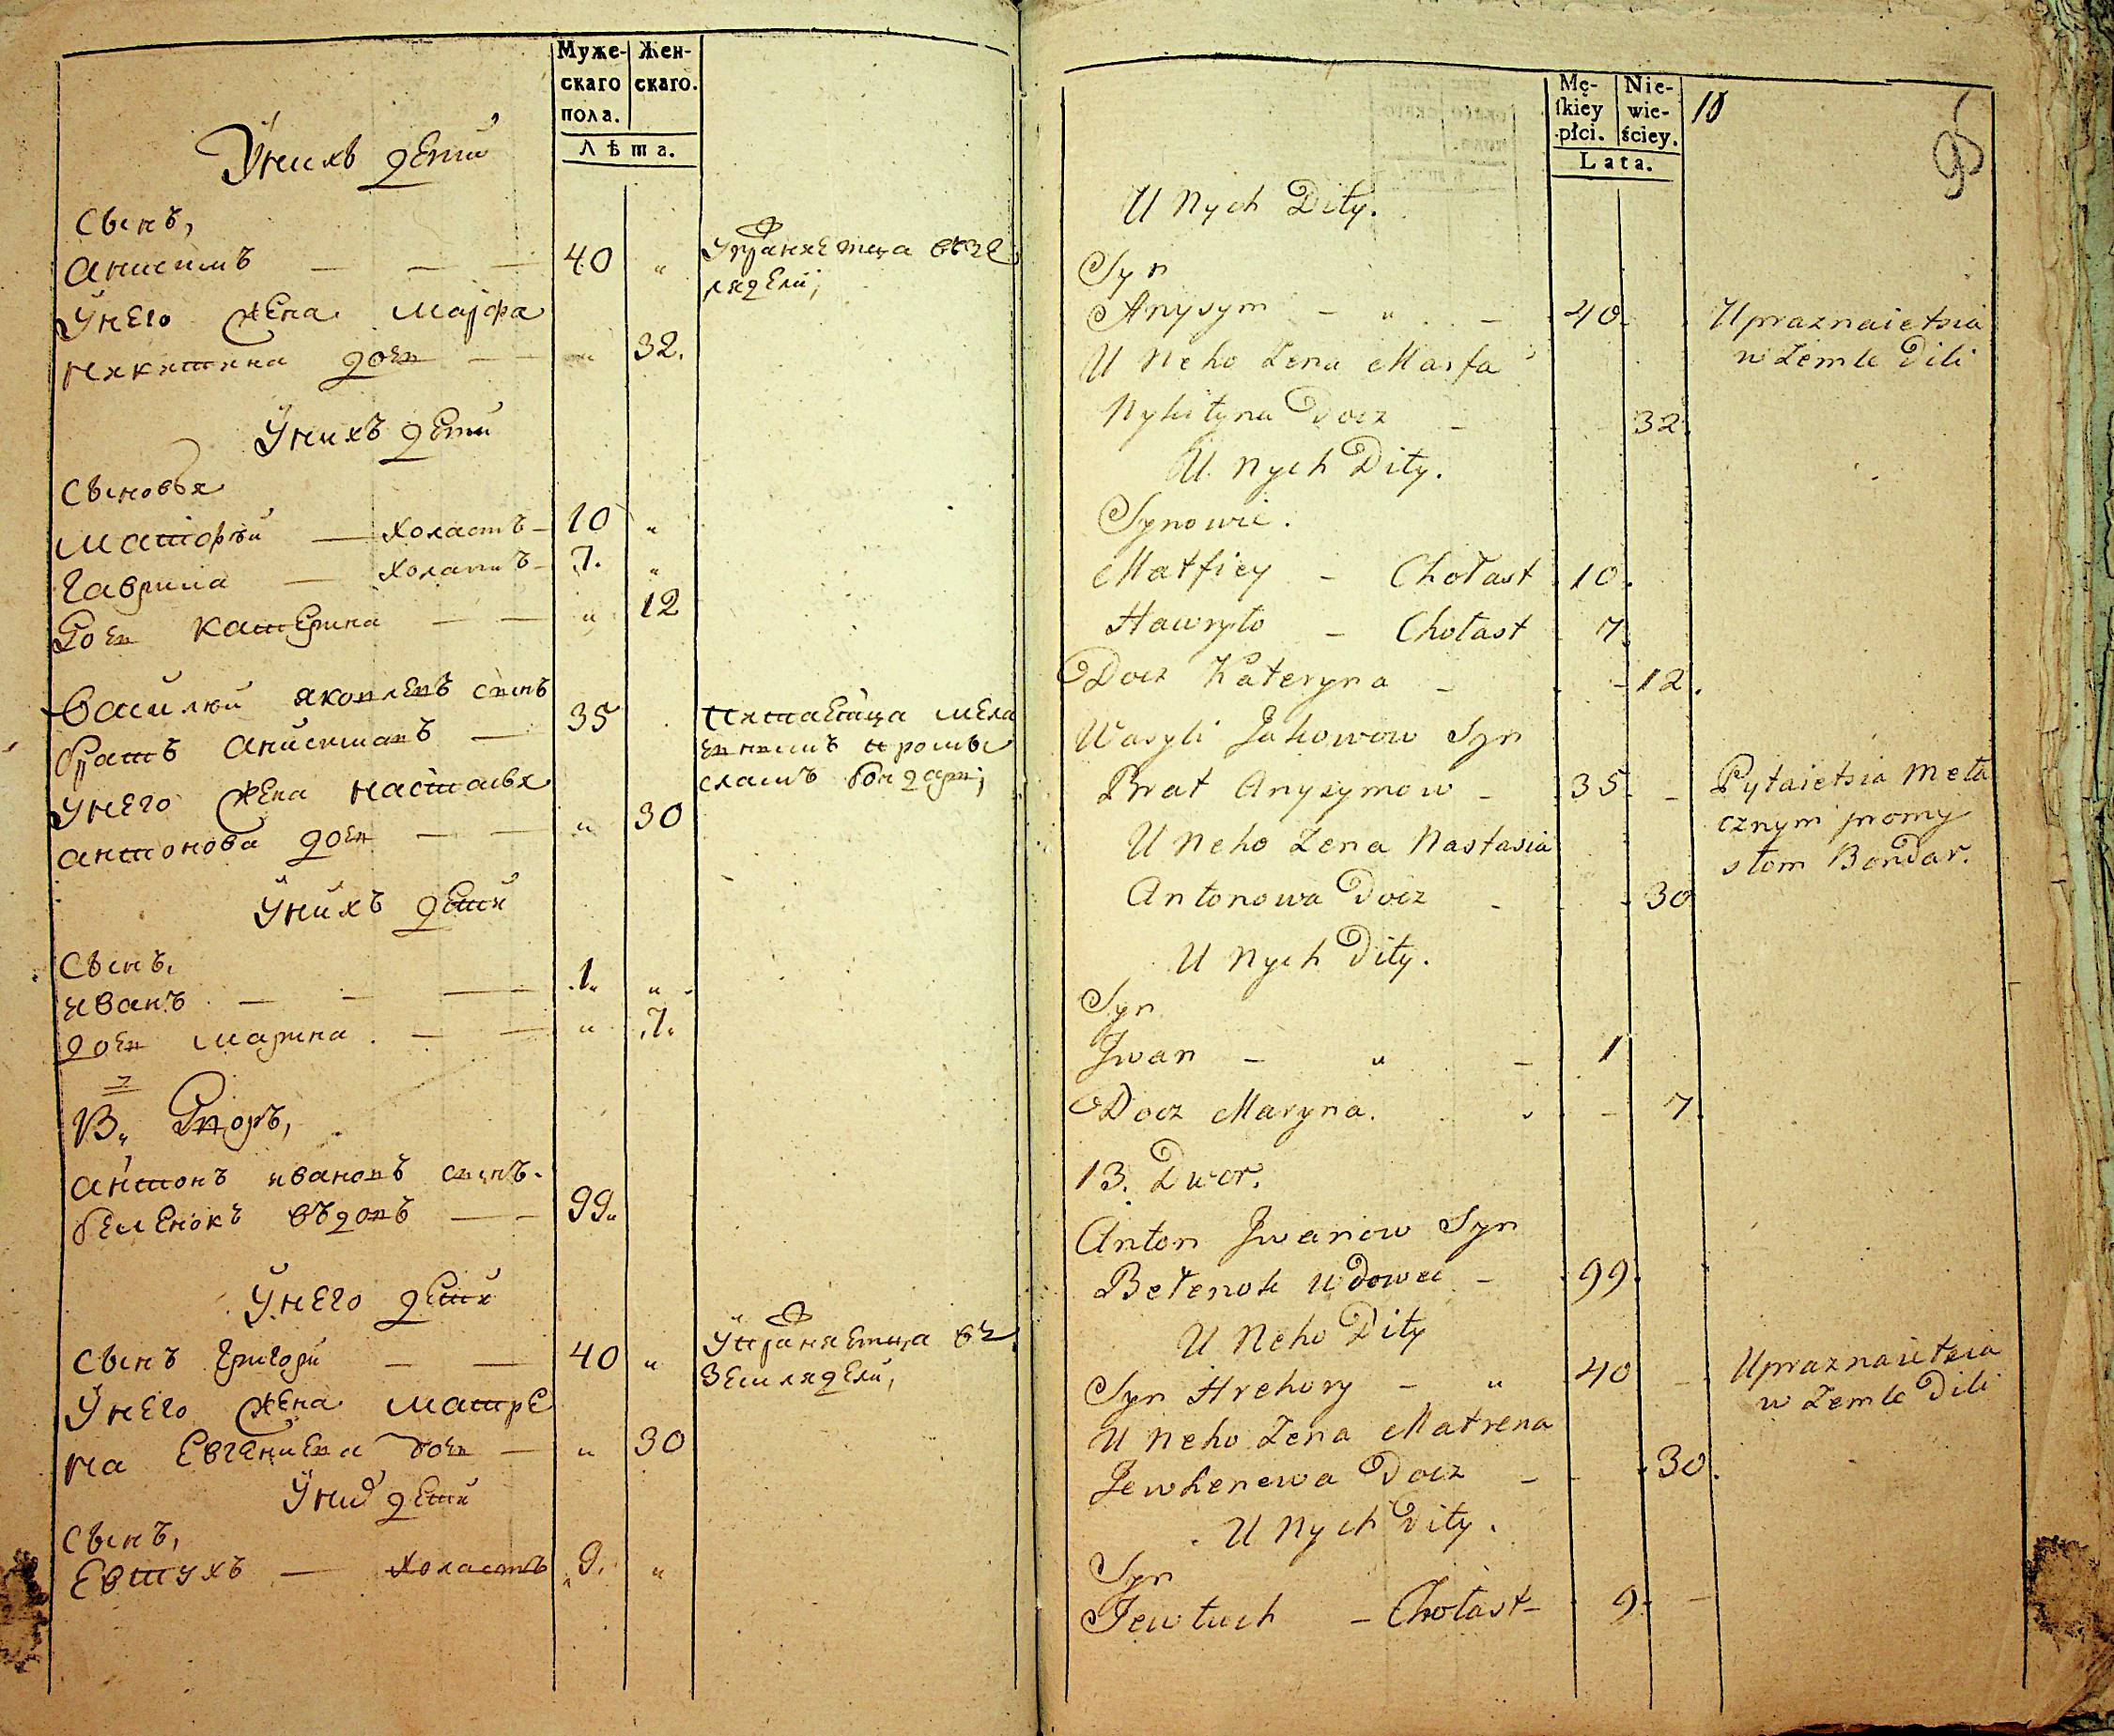 Муже-
скаго
пола.
Жен-
скаго.
Лѣта.
У нихъ дети
Сынъ,
Анисимъ — — — 40 "
Упражняетца въ зе
мледелii,
У него жена Марфа
Никитина дочь — — " 32.
У нихъ дети
Сыновья
Матфѣй — холастъ — 10 "
Гаврила — холастъ — 7. "
Дочь Катерина — — " 12
Василий яковлевъ сынъ
братъ Анисимовъ — 35
Питаетца мела
чнымъ промы
сломъ бондарь;
У него жена Настасья
Антонова дочь — — " 30
У нихъ дети
Сынъ.
Иванъ — — — 1. "
дочь Марина — — " 7.
13. Дворъ,
Антонъ ивановъ сынъ.
беленокъ въдовъ — — 99.
У него дети
Сынъ Григори — — 40 "
Упражняетца въ
земледелii,
У него жена Матре
на Евгениева дочь — " 30
У них дети
Сынъ,
Евтухъ — холастъ 9. "
Mę-
ſkiey
płci.
Nie-
wie-
ściey.
Lata.
10
95
U Nych Dity.
Syn
Anysym — " — 40.
Upraznaietsia
w Zemle Dili
U Neho Zena Marfa
Nykityna Docz — 32.
U Nych Dity.
Synowie.
Matfiey — Chołast 10.
Hawryło — Chołast 7.
Docz Kateryna — - 12.
Wasyli Jakowow Syn
Brat Anysymow — 35. -
Pytaietsia Meła
cznym promy
słom Bondar.
U Neho Zena Nastasia
Antonowa Docz - 30
U Nych Dity.
Syn
Jwan — " — 1
Docz Maryna. - 7.
13. Dwor.
Anton Jwanow Syn
Bełenok Wdowec — 99.
U Neho Dity
Syn Hrehory — " 40 -
Upraznaietsia
w Zemle Dili
U Neho Zena Matrena
Jewhenewa Docz — - 30.
U Nych Dity.
Syn
Jewtuch — Chołast — 9. -